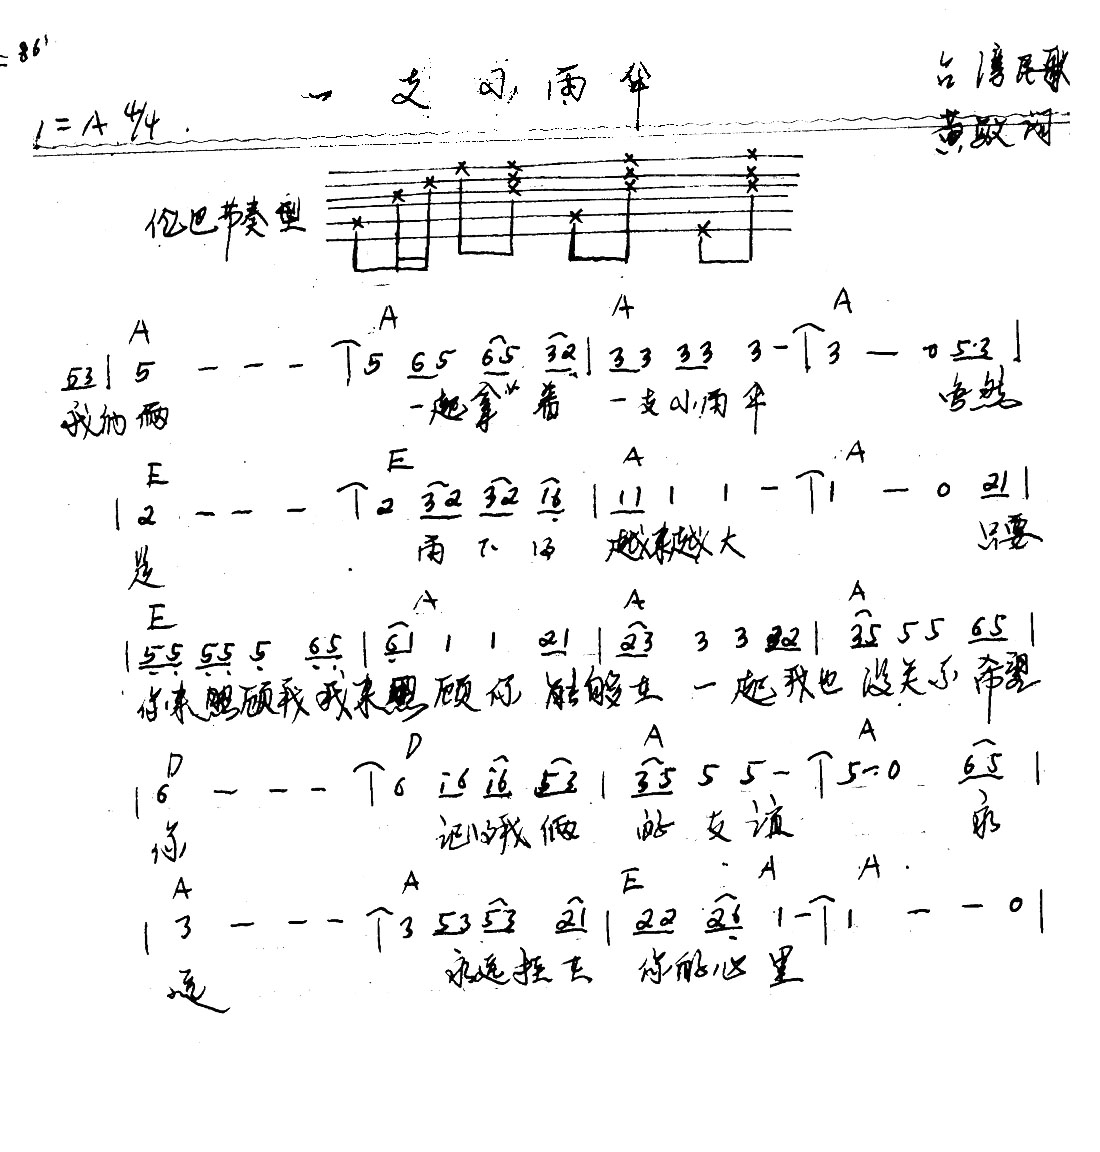 = 86'
一支小雨伞
台湾民歌
1=A 4/4
黄敏 词
伦巴节奏型
A A A A
53 | 5 - - - | 5 65 65 32 | 33 33 3 - | 3 - 0 53 |
我们俩 一起拿着 一支小雨伞 虽然
E E A A
| 2 - - - | 2 32 32 16 | 11 1 1 - | 1 - 0 21 |
是 雨下得 越来越大 只要
E A A A
| 55 55 5 65 | 61 1 1 21 | 23 3 3 22 | 35 5 5 65 |
你来照顾我我来照顾你 能够在 一起我也 没关系 希望
D D A A
| 6 - - - | 6 16 16 53 | 35 5 5 - | 5 - 0 65 |
你 记的我俩 的友谊 永
A A E A A
| 3 - - - | 3 53 53 21 | 22 26 1 - | 1 - - 0 |
远 永远挂在 你的心里